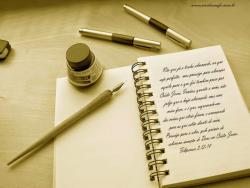 Não que já o tenha alcançado, ou que
seja perfeito; mas prossigo para alcançar
aquilo para o que fui também preso por
Cristo Jesus. Irmãos, quanto a mim, não
julgo que o haja alcançado; mas uma
coisa faço, e é que, esquecendo-me
das coisas que atrás ficam, e avançando
para as que estão diante de mim,
Prossigo para o alvo, pelo prêmio da
soberana vocação de Deus em Cristo Jesus.
Filipenses 3:12-14